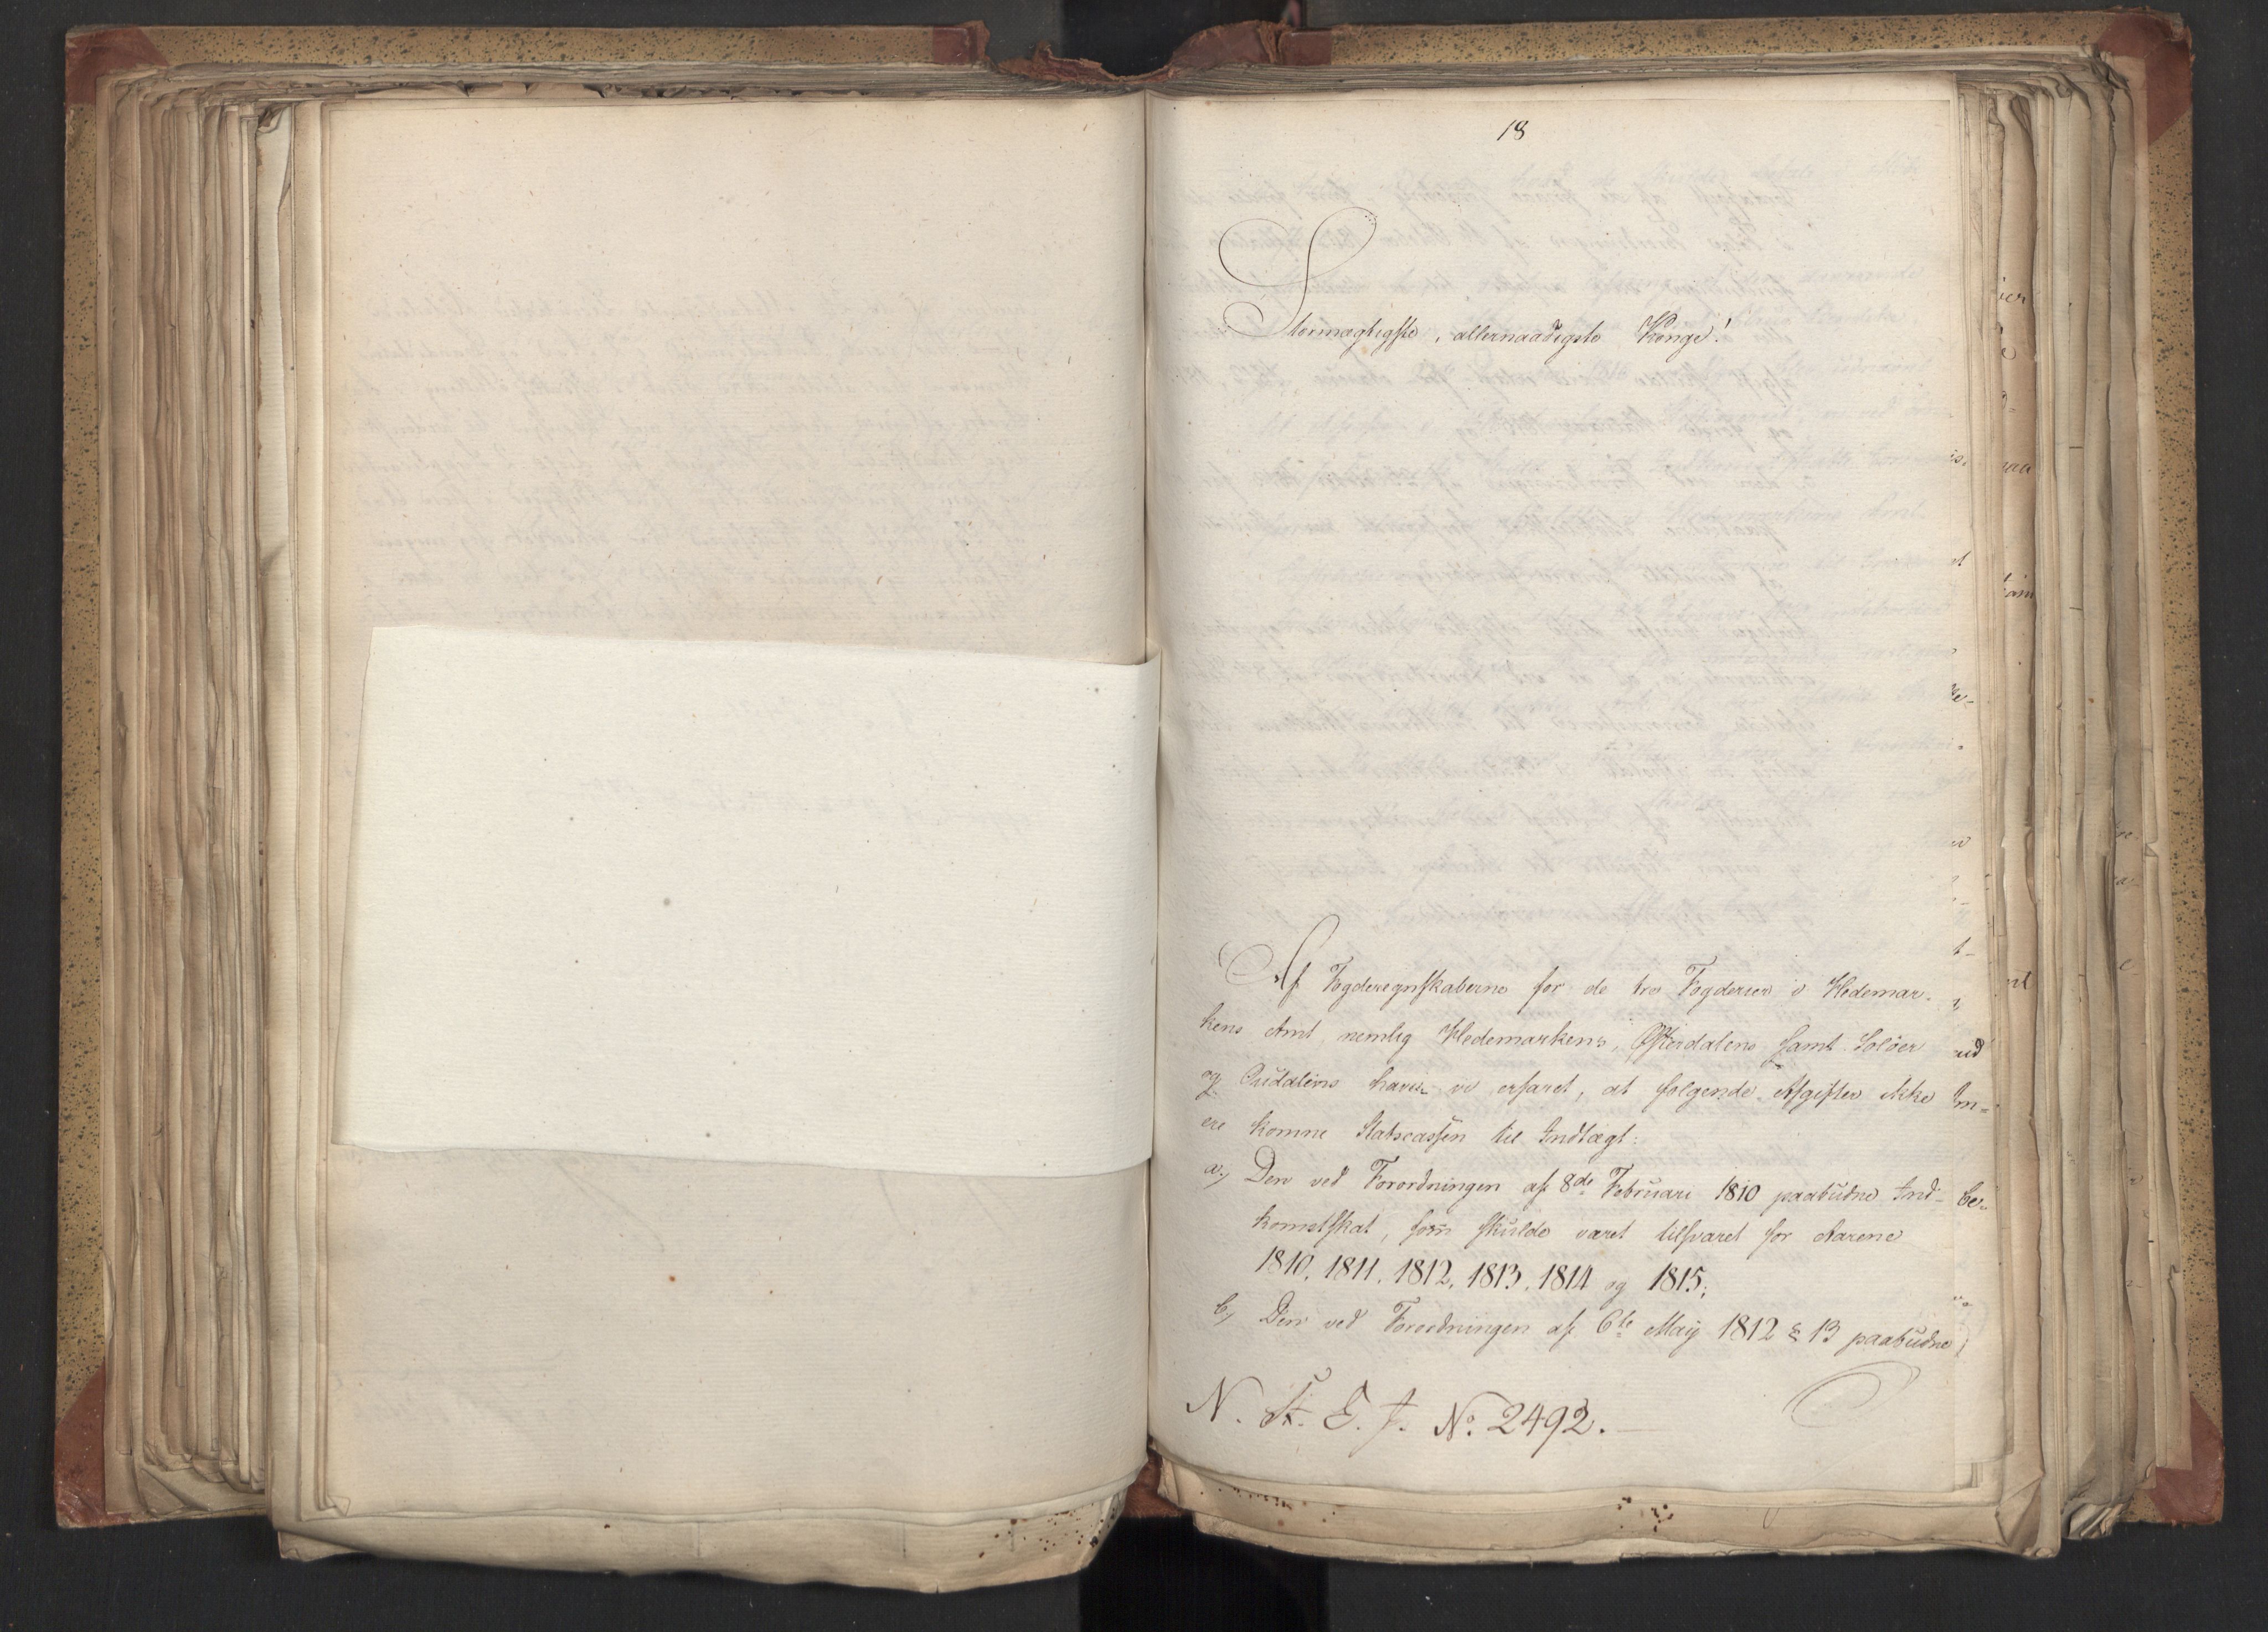 18
Stormægtigste, allernaadigste Konge!
Af Fogderegnskaberne for de tre Fogderier i Hedemar-
kens Amt, nemlig Hedemarkens, Østerdalens samt Soløer
og Oudalens have vi erfaret, at følgende Afgifter ikke
ere komne Statscassen til Indtægt:
a) Den ved Forordningen af 8de Februari 1810 paabudne Ind-
komstskat, som skulde været tilsvaret for Aarene
1810, 1811, 1812, 1813, 1814 og 1815;
b) Den ved Forordningen af 6te Maij 1812 § 13 paabudne
N. St. E. J. No. 2492.